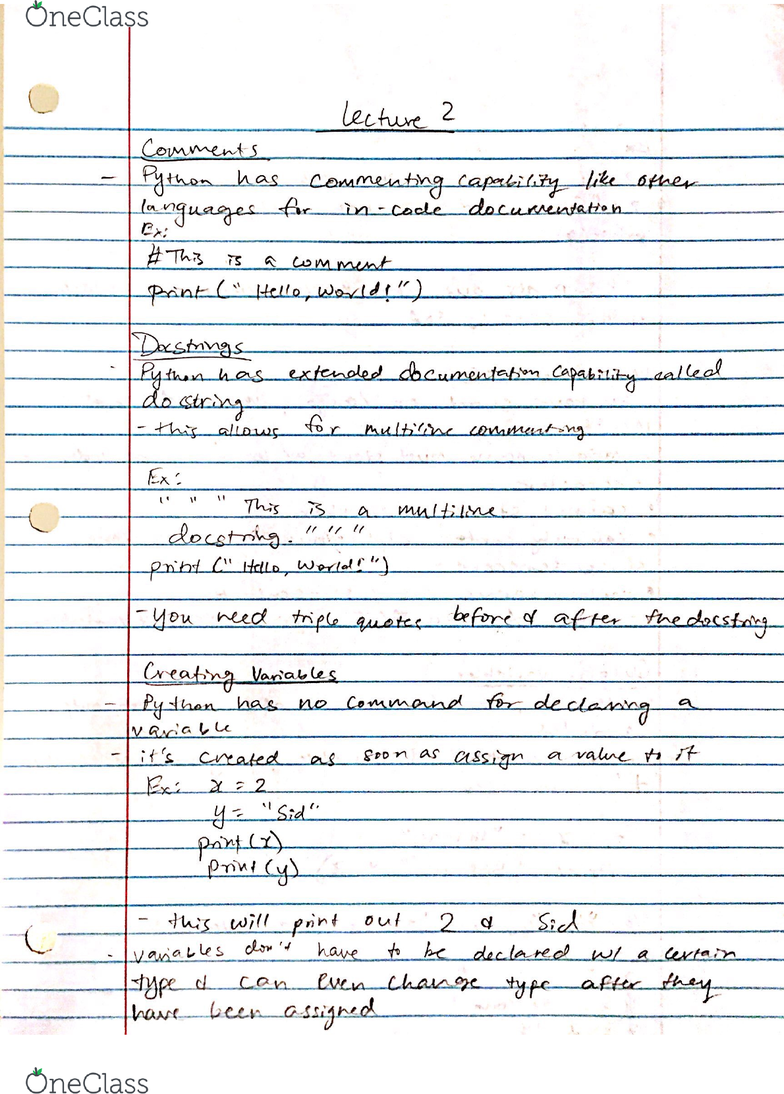 OneClass
Lecture 2
Comments
- Python has commenting capability like other
languages for in-code documentation
Ex:
# This is a comment
print (" Hello, World!")
Docstrings
- Python has extended documentation capability called
do string
- this allows for multiline commenting
Ex:
" " " This is a multiline
docstring. " " "
print (" Hello, World!")
- You need triple quotes before & after the docstring
Creating Variables
- Python has no command for declaring a
variable
- it's created as soon as assign a value to it
Ex: x = 2
y = "Sid"
print (x)
print (y)
- this will print out 2 & Sid
- variables don't have to be declared w/ a certain
type & can even change type after they
have been assigned
OneClass